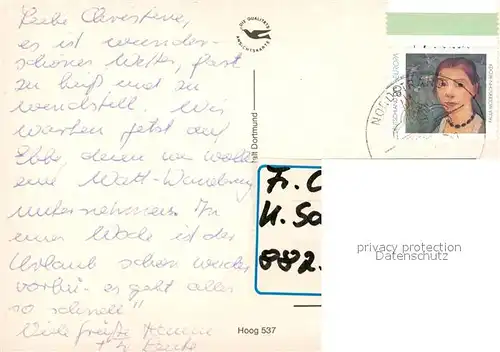 Liebe Christine,
es ist wunder-
schönes Wetter, fast
zu heiß und zu
windstill. Wir
warten jetzt auf
Ebbe, denn wir wollen
eine Watt-Wanderung
unternehmen. In
einer Woche ist der
Urlaub schon wieder
vorbei - es geht alles
so schnell"
Viele Grüße
GUTE QUALITÄTS
ANSICHTSKARTE
Dortmund
EUROPA
80
NORD
Fr. C
H. Sa
882.
privacy protection
Datenschutz
Hoog 537